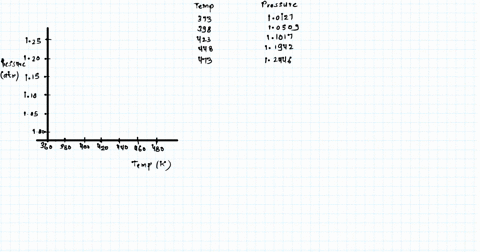 Temp Pressure
373 1.0127
398 1.0509
423 1.1017
448 1.1942
473 1.2446
1.25
1.20
Pressure
(atm) 1.15
1.10
1.05
1.00
360 380 400 420 440 460 480
Temp (K)